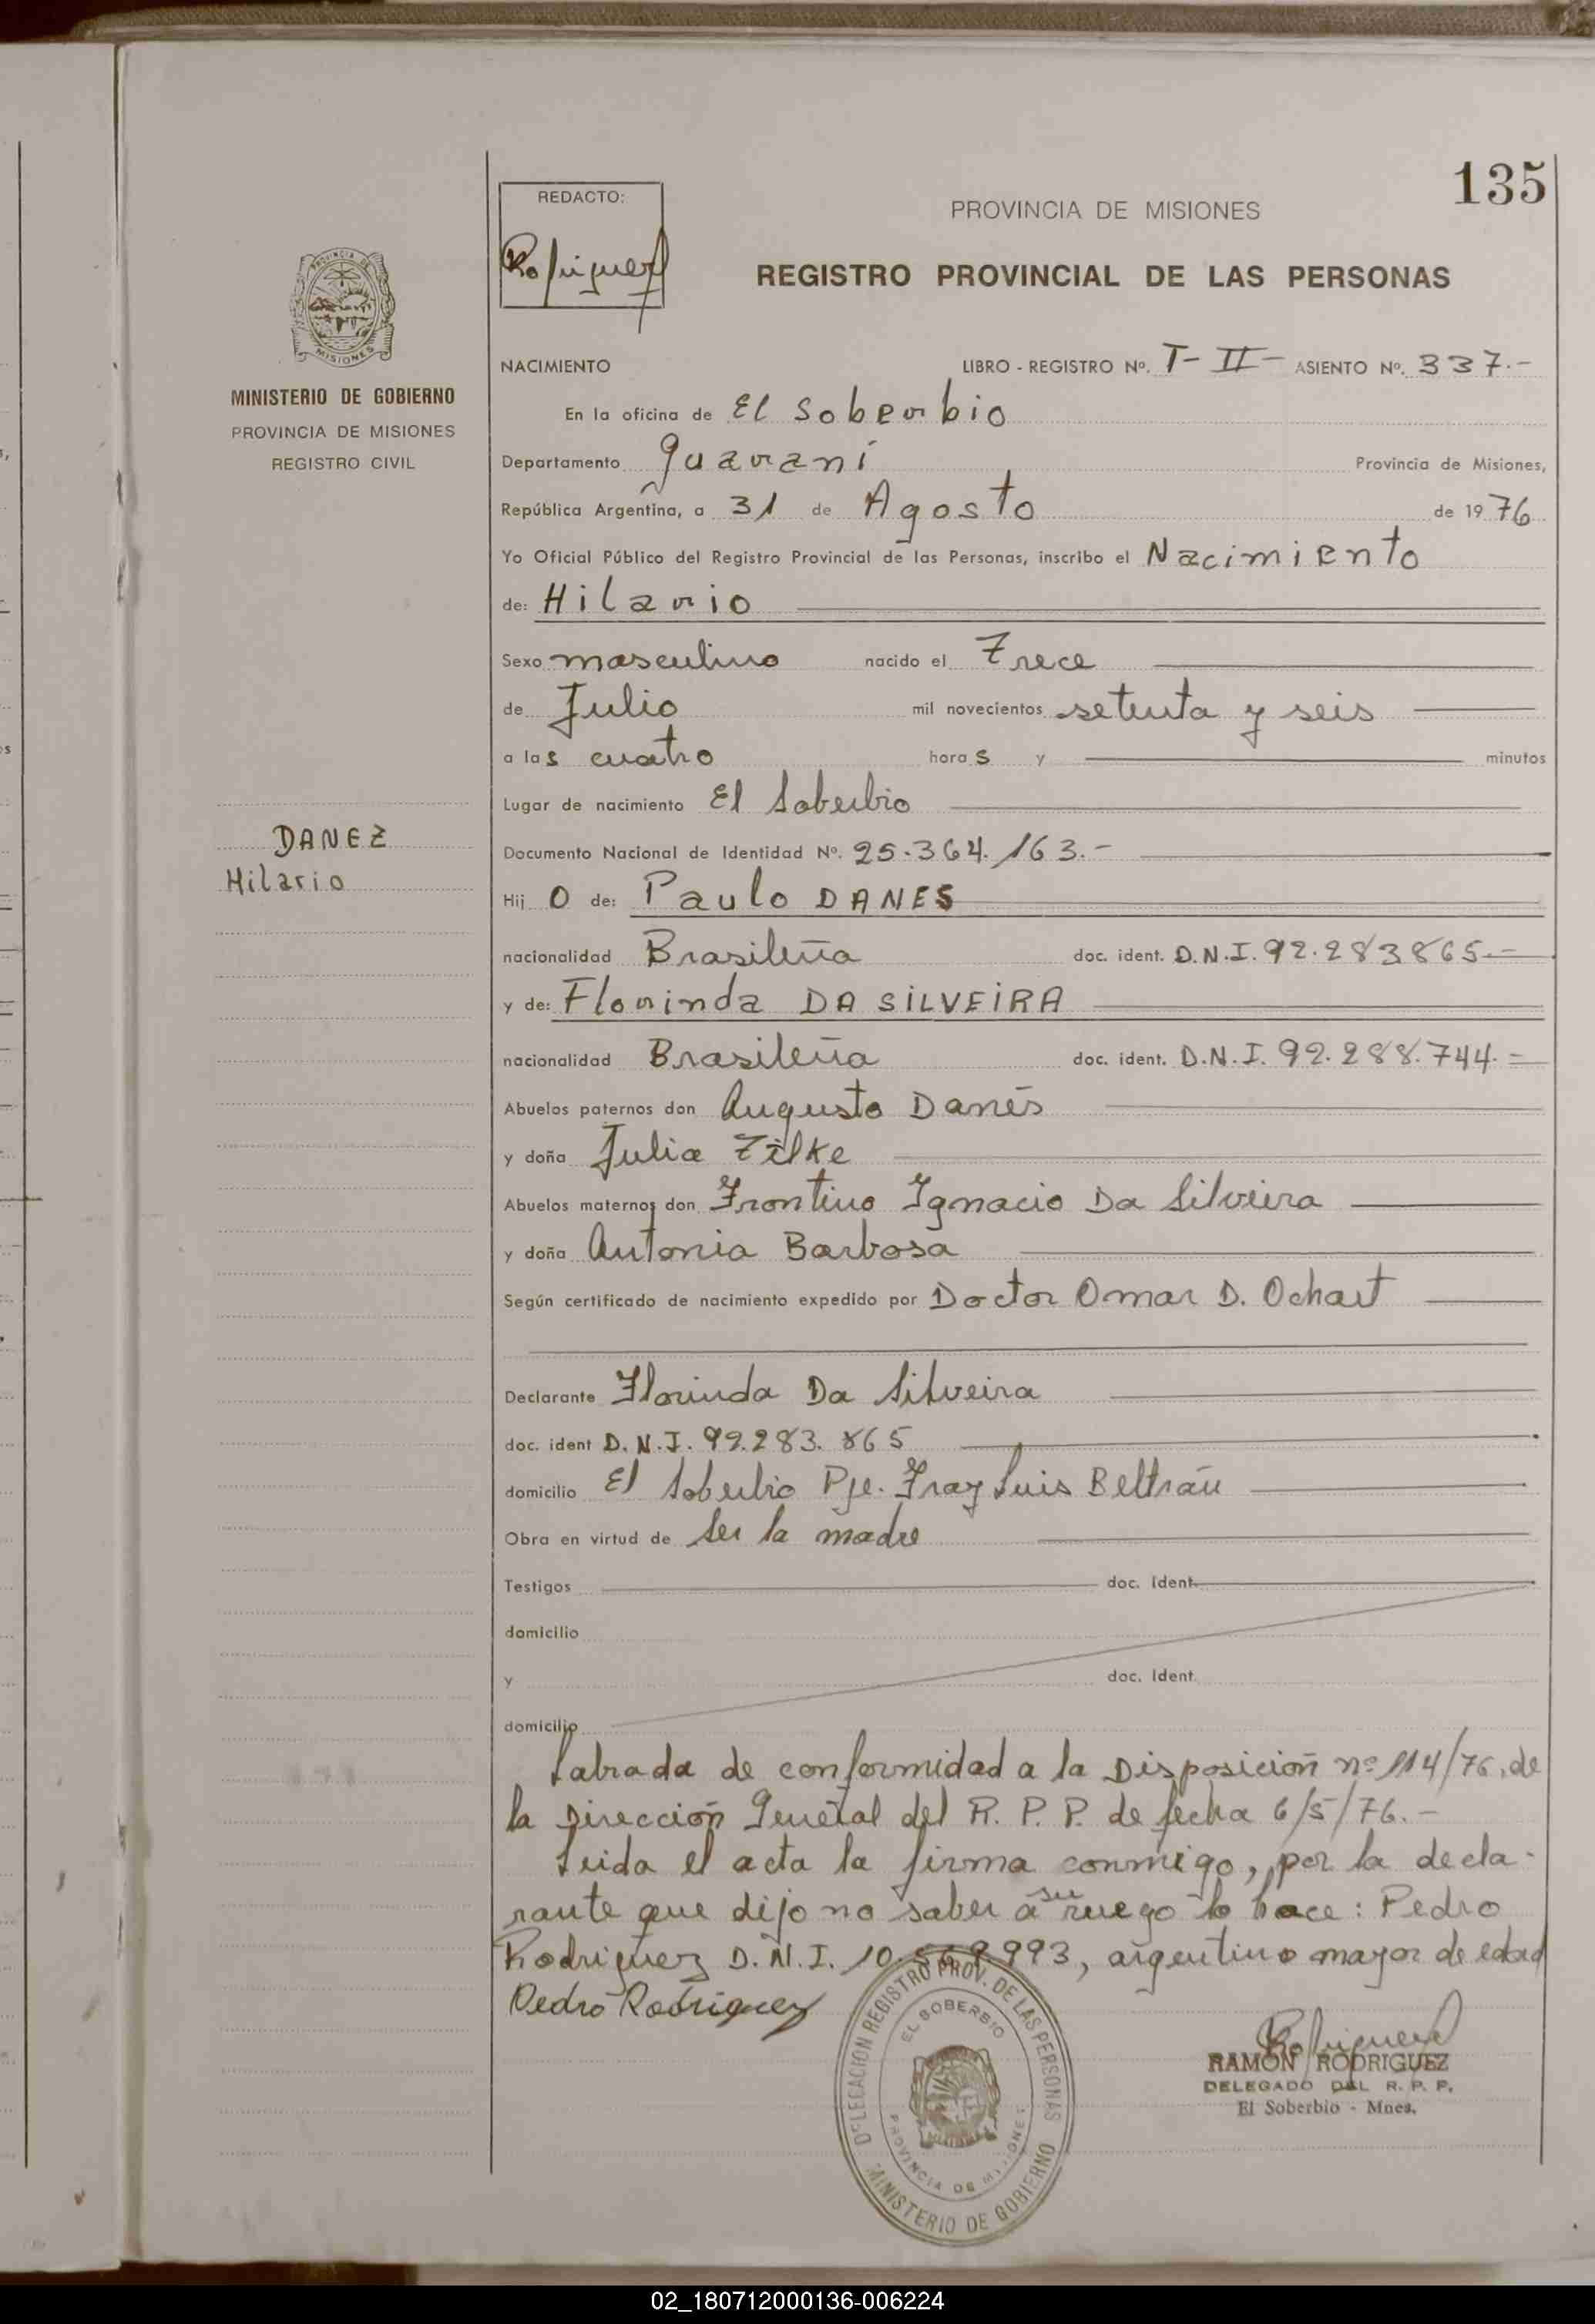 135
REDACTO:
Rodriguez
PROVINCIA DE MISIONES
REGISTRO PROVINCIAL DE LAS PERSONAS
PROVINCIA DE
MISIONES
MINISTERIO DE GOBIERNO
PROVINCIA DE MISIONES
REGISTRO CIVIL
NACIMIENTO LIBRO - REGISTRO Nº. T- II - ASIENTO Nº. 337.-
En la oficina de El Soberbio
Departamento Guaraní Provincia de Misiones,
República Argentina, a 31 de Agosto de 1976
Yo Oficial Público del Registro Provincial de las Personas, inscribo el Nacimiento
de: Hilario
Sexo masculino nacido el Trece
de Julio mil novecientos setenta y seis
a las cuatro horas y minutos
Lugar de nacimiento El Soberbio
DANEZ
Hilario
Documento Nacional de Identidad Nº. 25.364.163.-
Hijo de: Paulo DANES
nacionalidad Brasileña doc. ident. D.N.I. 92.283865.-
y de: Florinda DA SiLVEiRA
nacionalidad Brasileña doc. ident. D.N.I. 92.288.744.-
Abuelos paternos don Augusto Danés
y doña Julia Zilke
Abuelos maternos don Frontino Ignacio Da Silveira
y doña Antonia Barbosa
Según certificado de nacimiento expedido por Doctor Omar D. Ochart
Declarante Florinda Da Silveira
doc. ident D.N.I. 92.283.865
domicilio El Soberbio Pje. Fray Luis Beltrán
Obra en virtud de Ser la madre
Testigos doc. ident.
domicilio
y doc. ident.
domicilio
Labrada de conformidad a la Disposición nº 114/76, de
la Dirección General del R. P. P. de fecha 6/5/76.-
Leida el acta la firma conmigo, por la decla-
rante que dijo no saber a su ruego lo hace: Pedro
Rodriguez D.N.I. 10. 993, argentino mayor de edad
Pedro Rodriguez
DELEGACION REGISTRO PROV. DE LAS PERSONAS
EL SOBERBIO
PROVINCIA DE MISIONES
MINISTERIO DE GOBIERNO
Rodriguez
RAMÓN RODRIGUEZ
DELEGADO DEL R. P. P.
El Soberbio - Mnes.
02_180712000136-006224